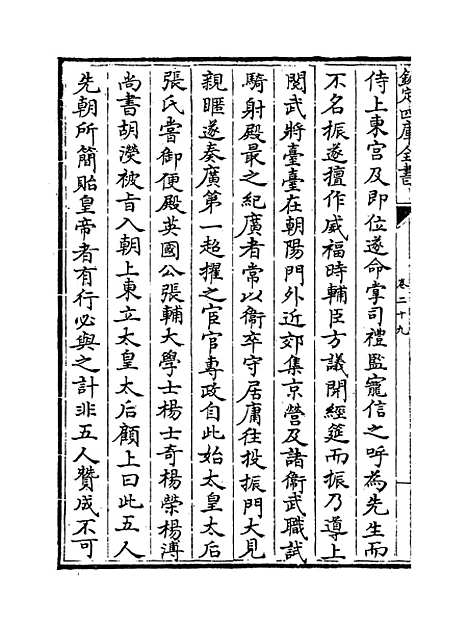 欽定四庫全書
卷二十九
侍上東宫及即位遂命掌司禮監寵信之呼為先生而
不名振遂擅作威福時輔臣方議開經筵而振乃導上
閲武將臺臺在朝陽門外近郊集京營及諸衛武職試
騎射殿最之紀廣者常以衞卒守居庸往投振門大見
親暱遂奏廣第一超擢之宦官專政自此始太皇太后
張氏嘗御便殿英國公張輔大學士楊士奇楊榮楊溥
尚書胡濙被旨入朝上東立太皇太后顧上曰此五人
先朝所簡貽皇帝者有行必與之計非五人贊成不可